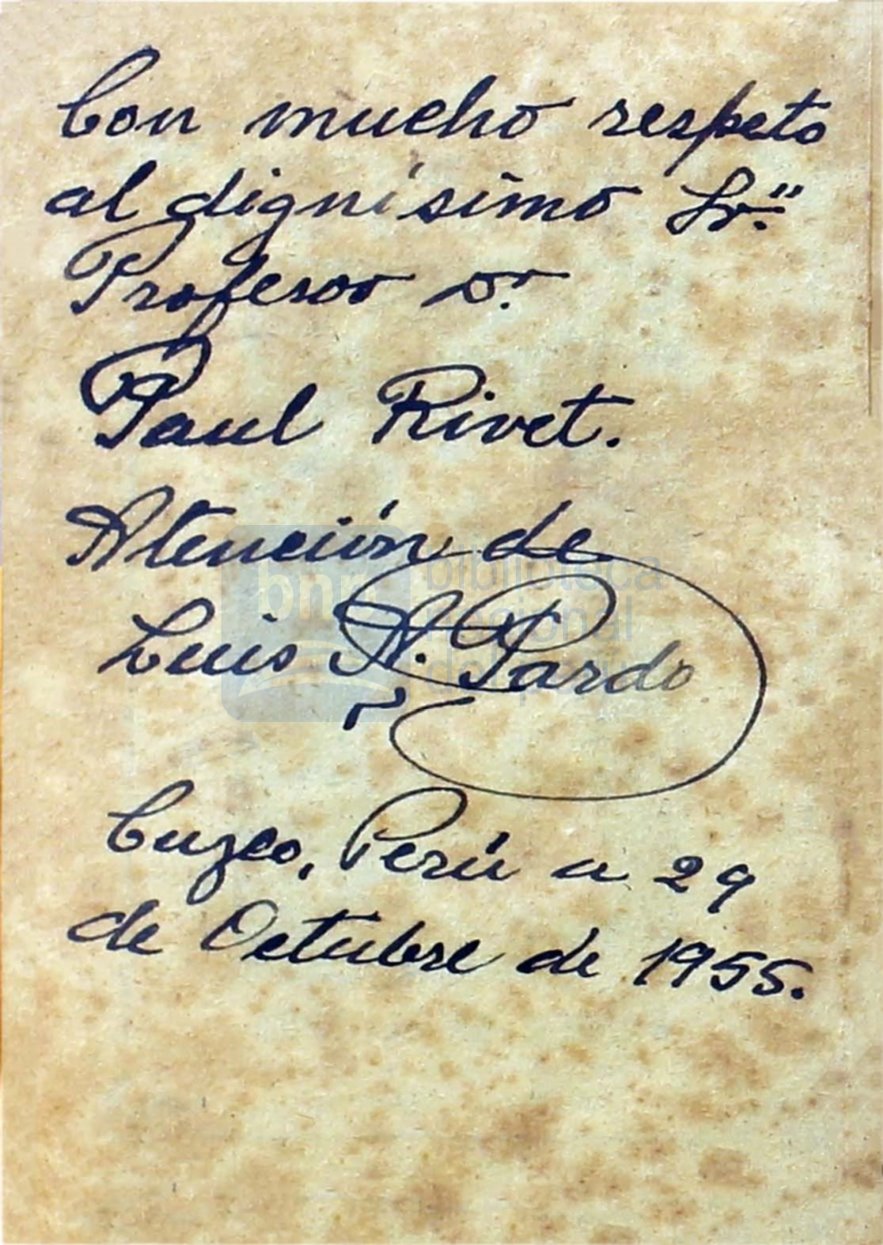 Con mucho respeto
al dignísimo Sr.
Profesor Dr.
Paul Rivet.
Atención de
Luis A. Pardo
Cuzco, Perú a 29
de Octubre de 1955.
bnp biblioteca
nacional
del perú